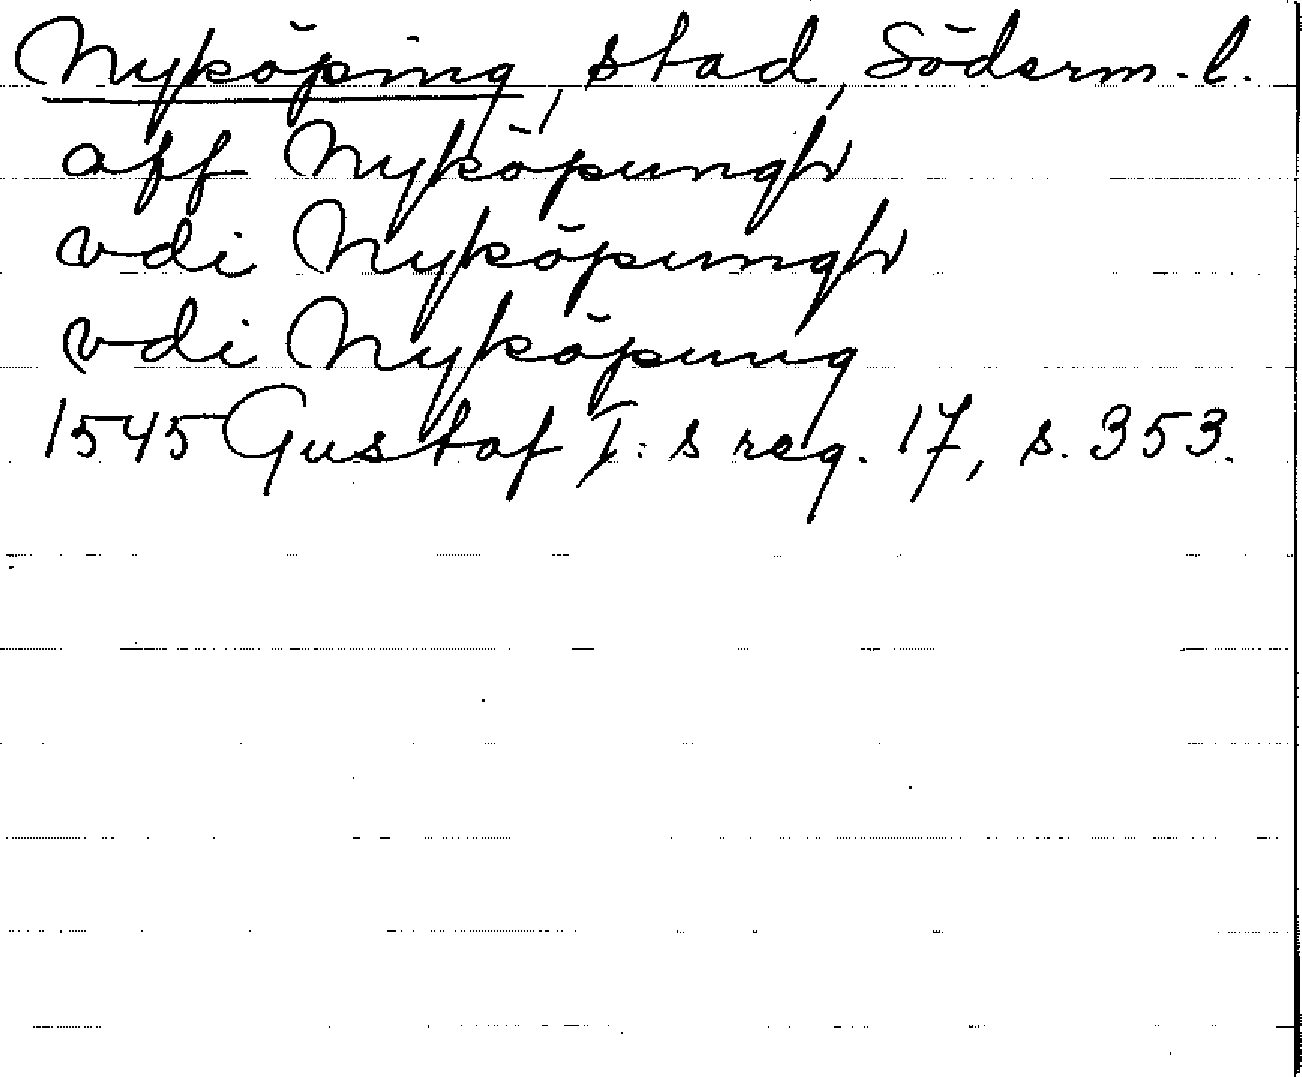 Nyköping, stad, Söderm. l.
aff Nyköpungh
vdi Nyköpungh
vdi Nyköpung
1545 Gustaf I:s reg. 17, s. 353.